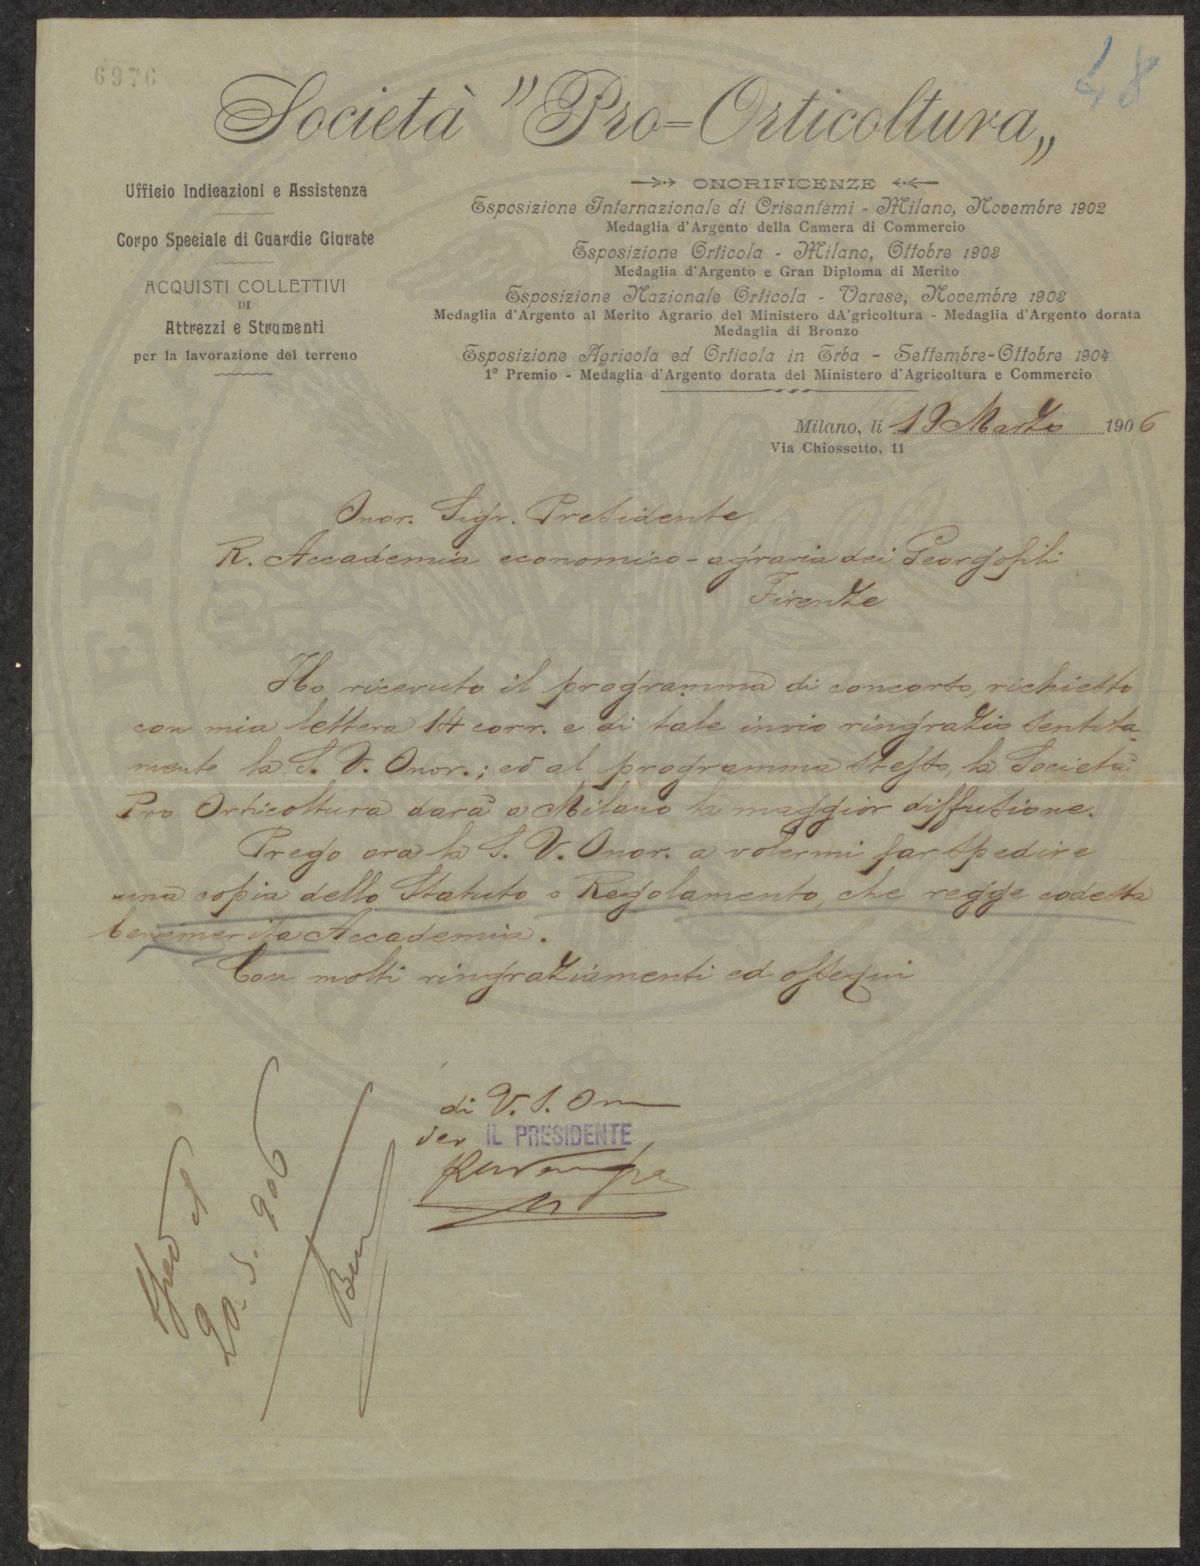 6976
48
Società "Pro=Orticoltura„
Ufficio Indicazioni e Assistenza
Corpo Speciale di Guardie Giurate
ACQUISTI COLLETTIVI
DI
Attrezzi e Strumenti
per la lavorazione del terreno
ONORIFICENZE
Esposizione Internazionale di Crisantemi - Milano, Novembre 1902
Medaglia d'Argento della Camera di Commercio
Esposizione Orticola - Milano, Ottobre 1903
Medaglia d'Argento e Gran Diploma di Merito
Esposizione Nazionale Orticola - Varese, Novembre 1903
Medaglia d'Argento al Merito Agrario del Ministero dA'gricoltura - Medaglia d'Argento dorata
Medaglia di Bronzo
Esposizione Agricola ed Orticola in Erba - Settembre-Ottobre 1904
1º Premio - Medaglia d'Argento dorata del Ministero d'Agricoltura e Commercio
Milano, li 19 Marzo 1906
Via Chiossetto, 11
Onor. Sigr. Presidente
R. Accademia economico-agraria dei Georgofili
Firenze
Ho ricevuto il programma di concorso, richiesto
con mia lettera 14 corr. e di tale invio ringrazio sentita-
mente la S. V. Onor.; ed al programma stesso, la Società
Pro Orticoltura darà a Milano la maggior diffusione.
Prego ora la S. V. Onor. a volermi far spedire
una copia dello Statuto o Regolamento, che regge codesta
benemerita Accademia.
Con molti ringraziamenti ed ossequi
di V. S. On
per IL PRESIDENTE
20. 3. 906